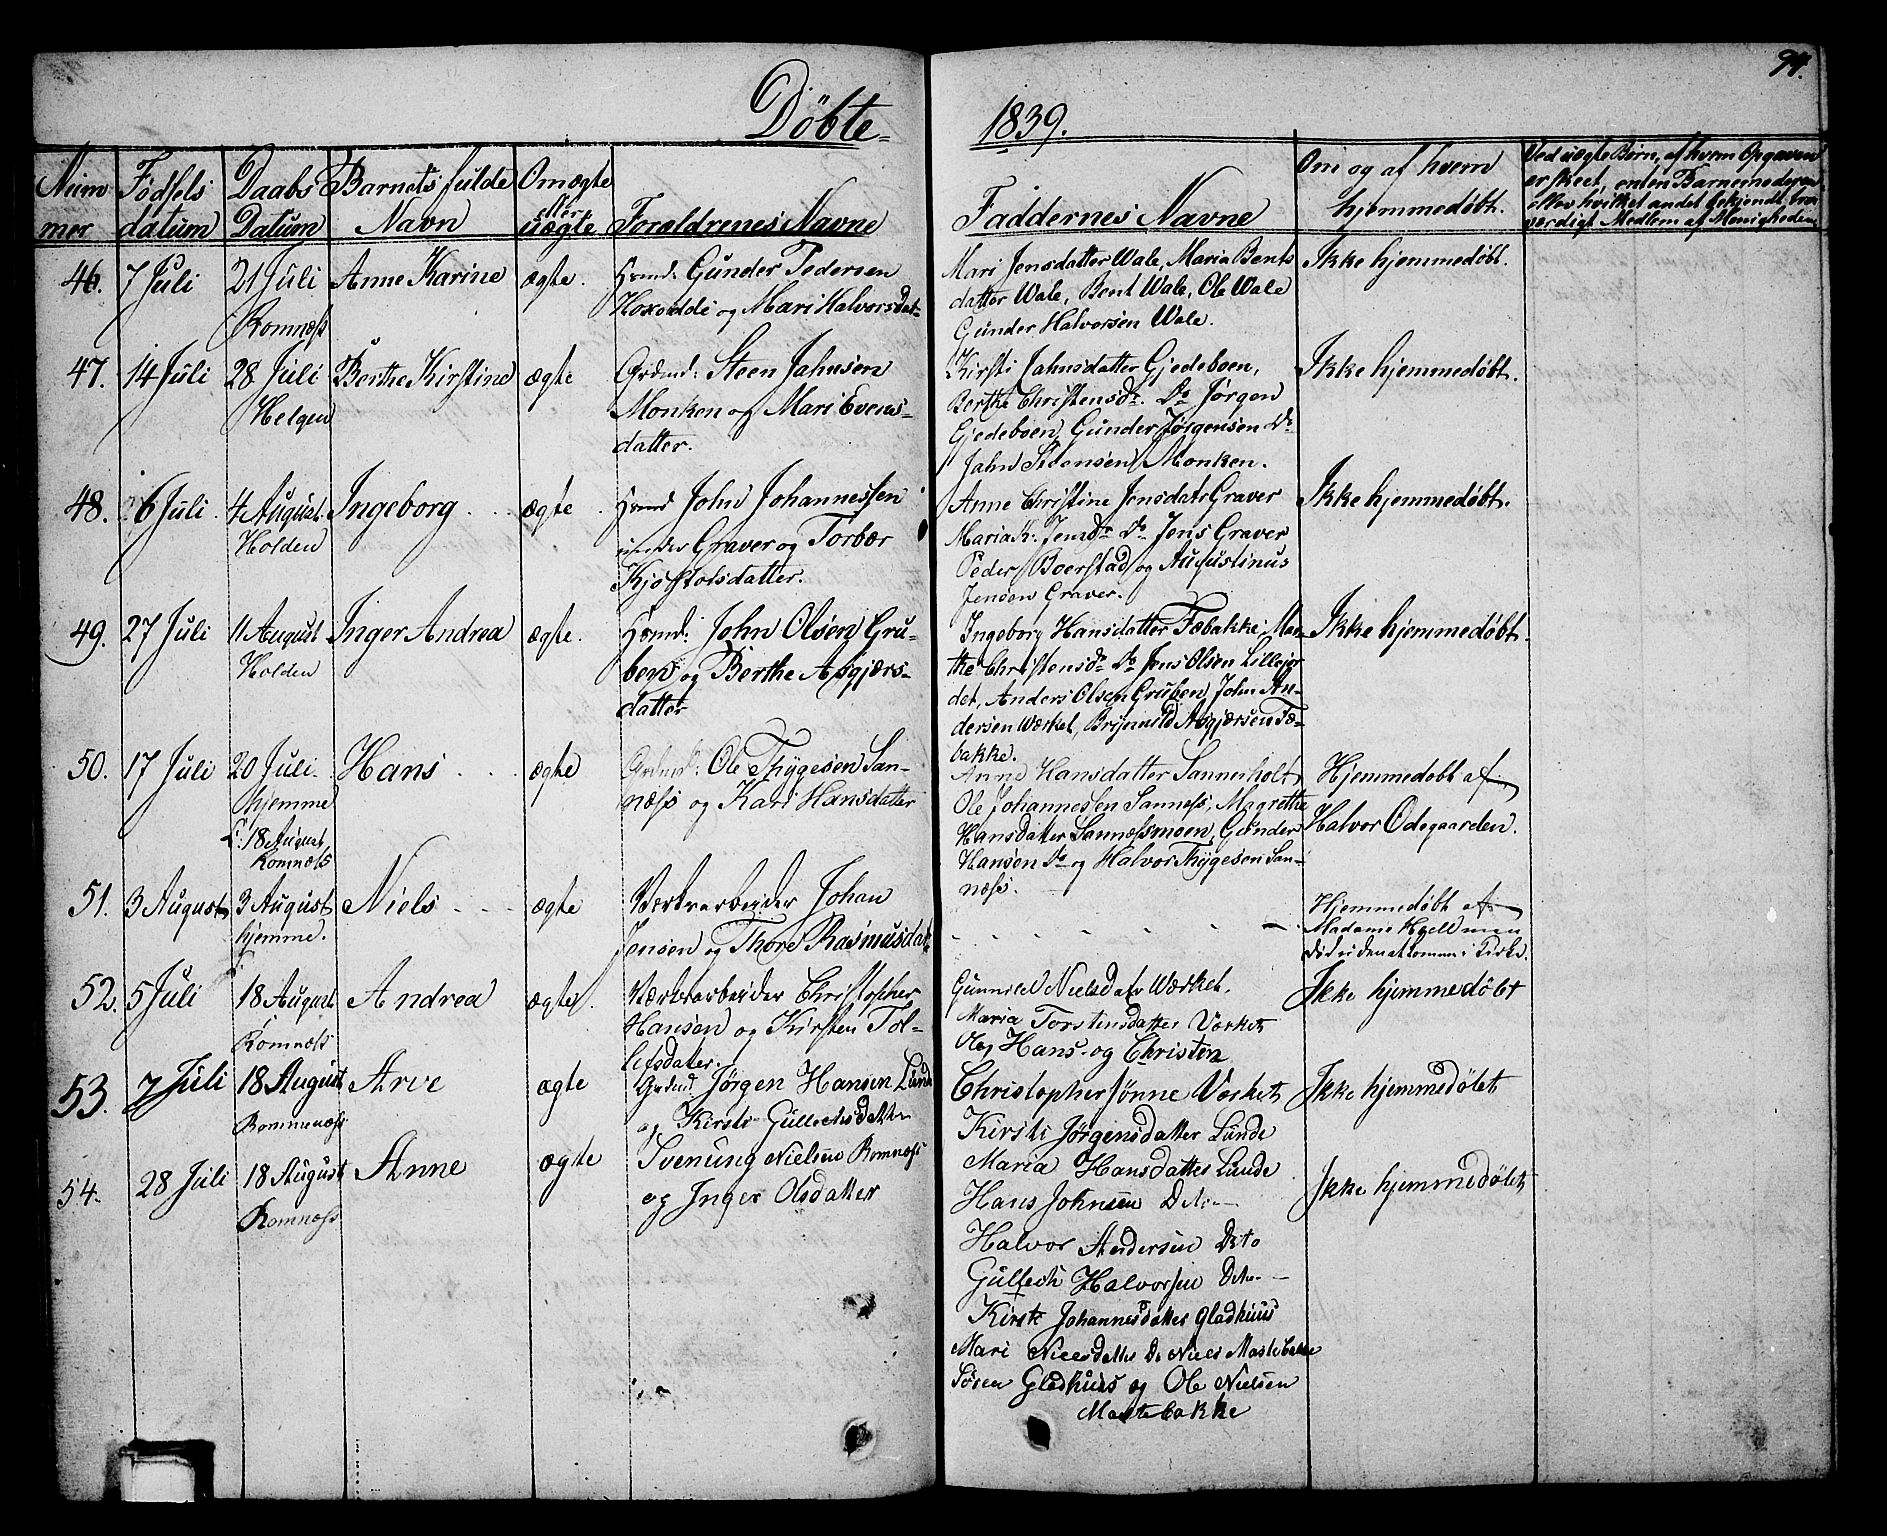 94.
Döbte 1839.
Num mer
Fødsels datum
Daabs Datum
Barnets fulde Navn
Om ægte eller uægte
Forældrenes Navne
Faddernes Navne
Om og af hvem hjemmedøbt.
Ved uægte Børn, af hvem Opgaven
er skeet, enten Barnemoderen
eller hvilket andet bekjendt tro
værdigt Medlem af Menigheden
46. 7 Juli 21 Juli Romnæss Anne Karine ægte.
Huusmd: Gunder Pedersen
og Mari Halvorsdat-
Mari Jensdatter Wale, Maria Bents
datter Wale, Bent Wale, Ole Wale
Gunder Halvorsen Wale.
Ikke hjemmedøbt.
47. 14 Juli 28 Juli Helgen Berthe Kirstine ægte
Grdmd: Steen Jahnsen
Monken og Mari Evens-
datter.
Kirsti Jahnsdatter Gjedeboen,
Berthe Christensdr. Do Jørgen
Gjedeboen, Gunder Jørgensen Do
Jahn Steensen Monken.
Ikke hjemmedøbt.
48. 6 Juli 4 August Holden Ingeborg ægte
Huusmd John Johannessen
under Graver og Torbær
Kjøstolsdatter.
Anne Christine Jensdatr Graver
Maria K: Jensdr Do Jens Graver
Peder Boerstad og Augustinus
Jensen Graver.
Ikke hjemmedøbt.
49. 27 Juli 11 August Holden Inger Andrea ægte.
Huusmd: John Olsen Gru-
ben og Berthe Asgjærs-
datter
Ingeborg Hansdatter Fæbakke, Mar-
the Christensdr Do Jens Olsen Lillejor
det, Anders Olsen Gruben, John An-
dersen Værket, Brynnild Asgjærsen Fæ-
bakke.
Ikke hjemmedøbt.
50. 17 Juli 20 Juli hjemme 18 August Romnæss Hans ægte
Grdmd: Ole Thygesen San-
næss og Kari Hansdatter
Anne Hansdatter Sannerholt
Ole Johannessen Sanness, Magrethe
Hansdatter Sannæssmoen, Gunder
Hansen Do og Halvor Thygesen San-
næss.
Hjemmedøbt af
Halvor Odegaarden.
51. 3 August 3 August hjemme. Niels ægte
Værksarbeider Johan
Jensen og Thore Rasmusdat.
Hjemmedøbt af
Madame
52. 5 Juli 18 August Romnæss Andrea ægte.
Værksarbeider Christopher
Hansen og Kirsten Tol-
lefsdatter.
Gunnild Nielsdatr Værket.
Maria Torstensdatter Værket
Ole, Hans og Christen
Ikke hjemmedøbt
53. 7 Juli 18 August Romnæss Arve ægte
Grdmd Jørgen Hansen Lunde
og Kirsti Gullechsdatter
Christophersønne Værket
Kirsti Jørgensdatter Lunde
Maria Hansdatter Lunde
Hans Johnsen Dito
Halvor Andersen Dito
Gullech Halvorsen Dito
Ikke hjemmedøbt
54. 28 Juli 18 August Romnæss Anne ægte
Svenung Nielsen Romnæss
og Inger Olsdatter
Kirste Johannesdatter Gladhuus
Mari Nielsdatter Do Niels Mastebakke
Søren Gladhuus og Ole Nielsen
Mastebakke
Ikke hjemmedøbt